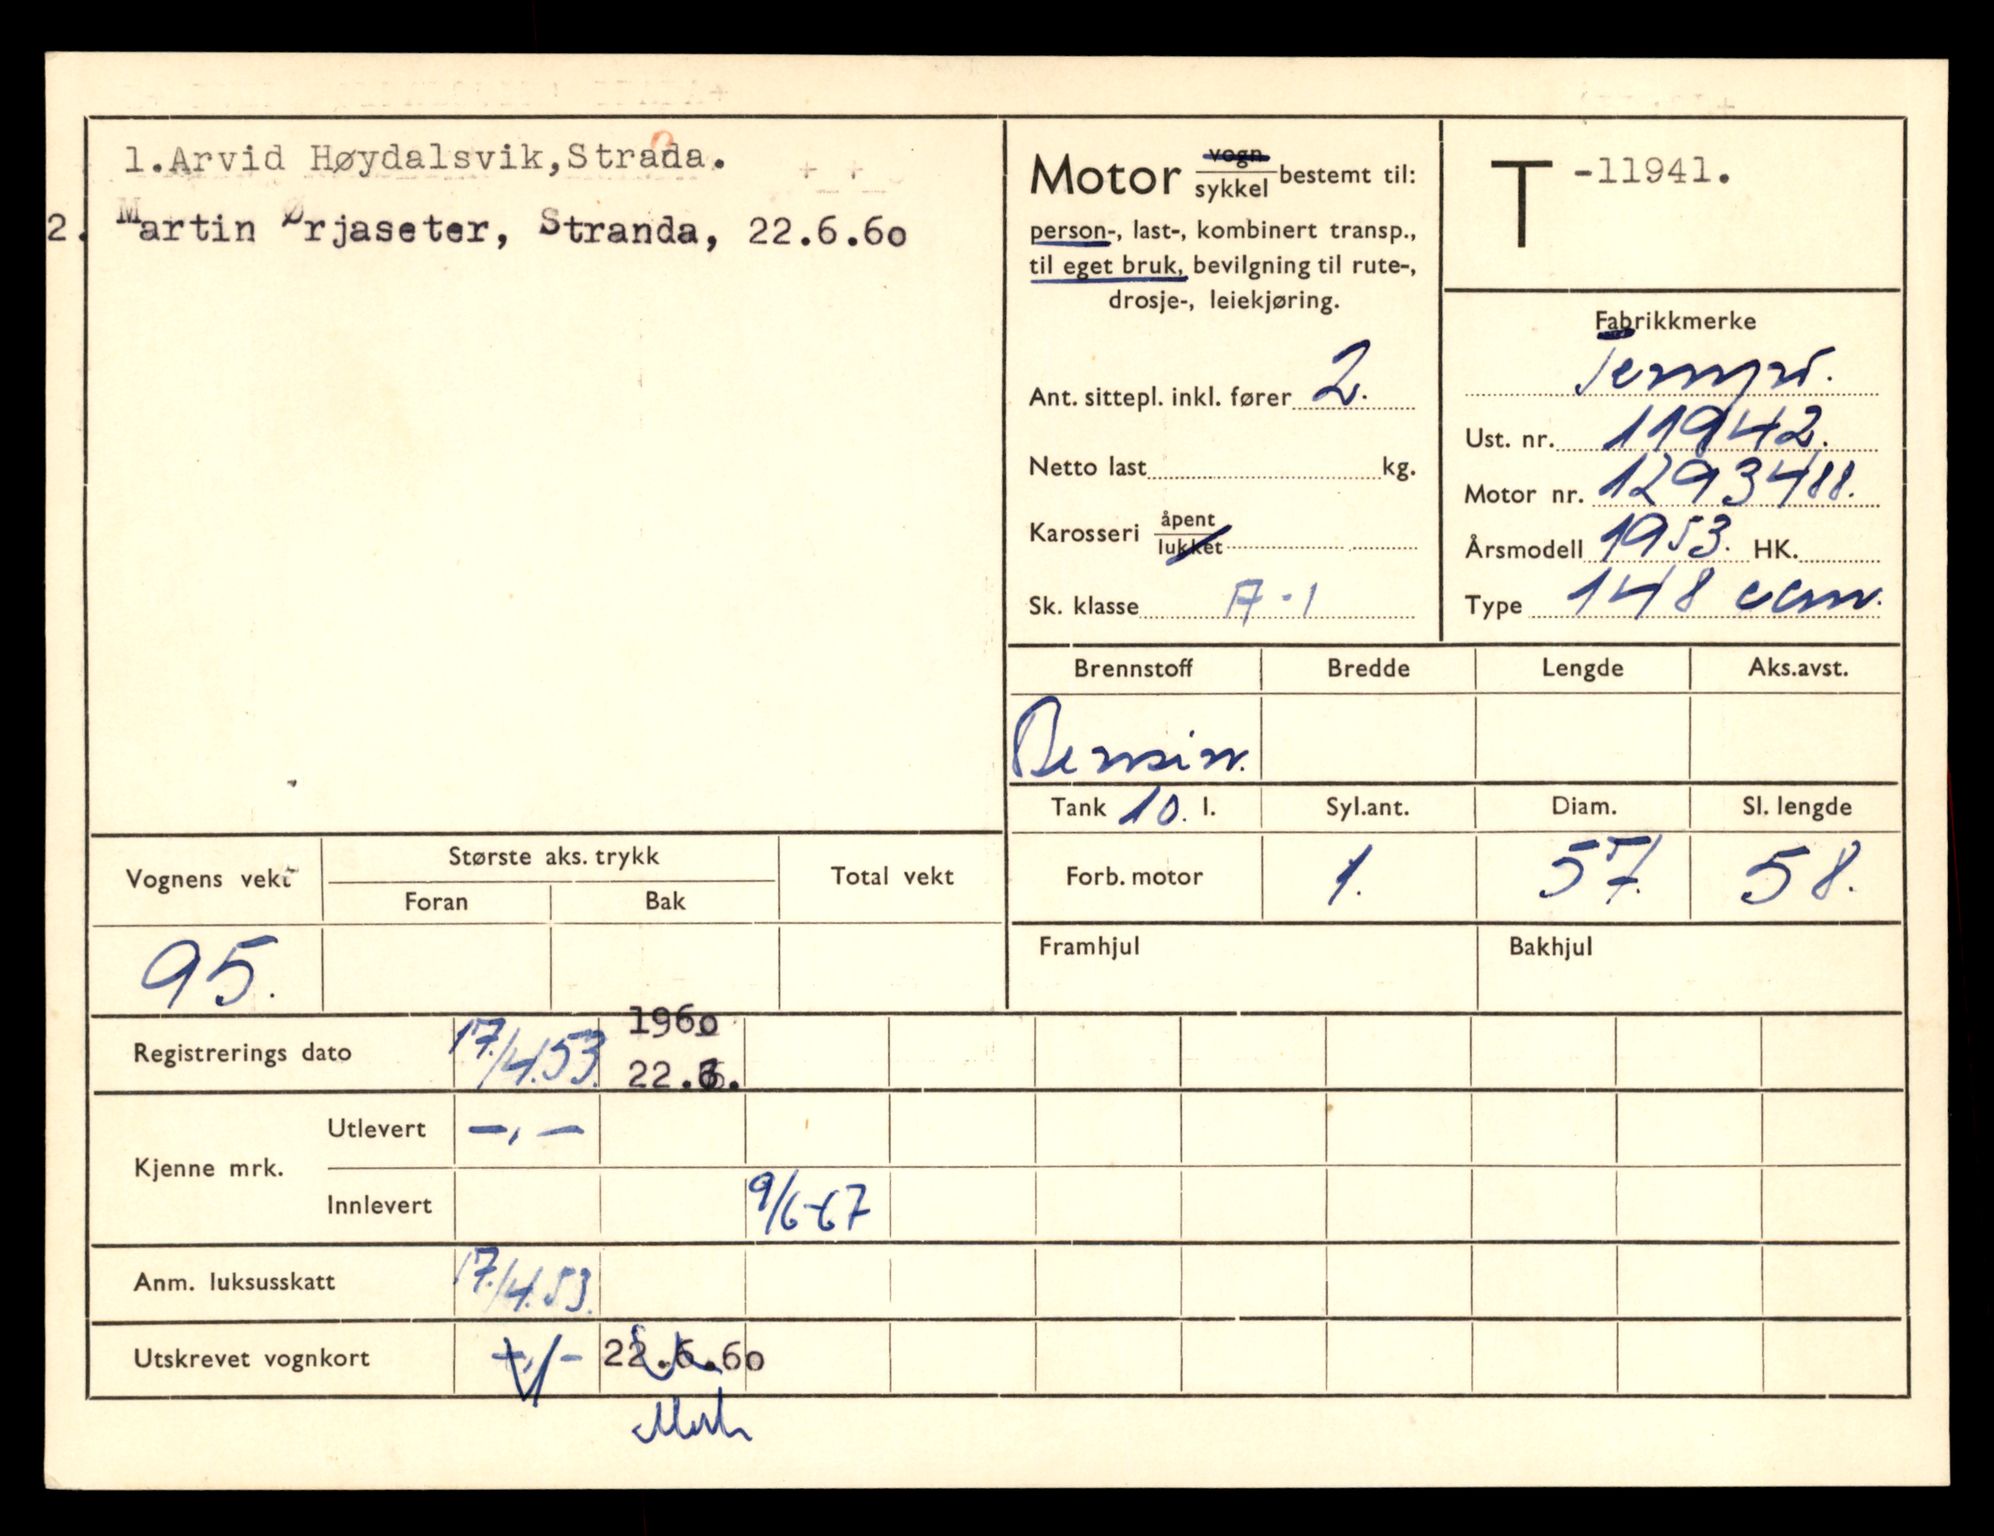 1.Arvid Høydalsvik,Strada.
2. Martin Ørjaseter, Stranda, 22.6.60
Motor vogn sykkel bestemt til:
person-, last-, kombinert transp.,
til eget bruk, bevilgning til rute-,
drosje-, leiekjøring.
Ant. sittepl. inkl. fører 2.
Netto last kg.
Karosseri åpent lukket
Sk. klasse A-1
T -11941.
Fabrikkmerke
Tempo.
Ust. nr. 11942.
Motor nr. 1293488.
Årsmodell 1953. HK.
Type 148 ccm.
Brennstoff Bredde Lengde Aks.avst.
Bensin.
Tank 10. l. Syl.ant. Diam. Sl. lengde
Forb. motor 1. 57. 58.
Framhjul Bakhjul
Vognens vekt Største aks. trykk Total vekt
Foran Bak
95.
Registrerings dato 17./4.53. 1960 22.6.
Kjenne mrk.
Utlevert –,–
Innlevert 9/6-67
Anm. luksusskatt 17./4.53.
Utskrevet vognkort –,– 22.6.60